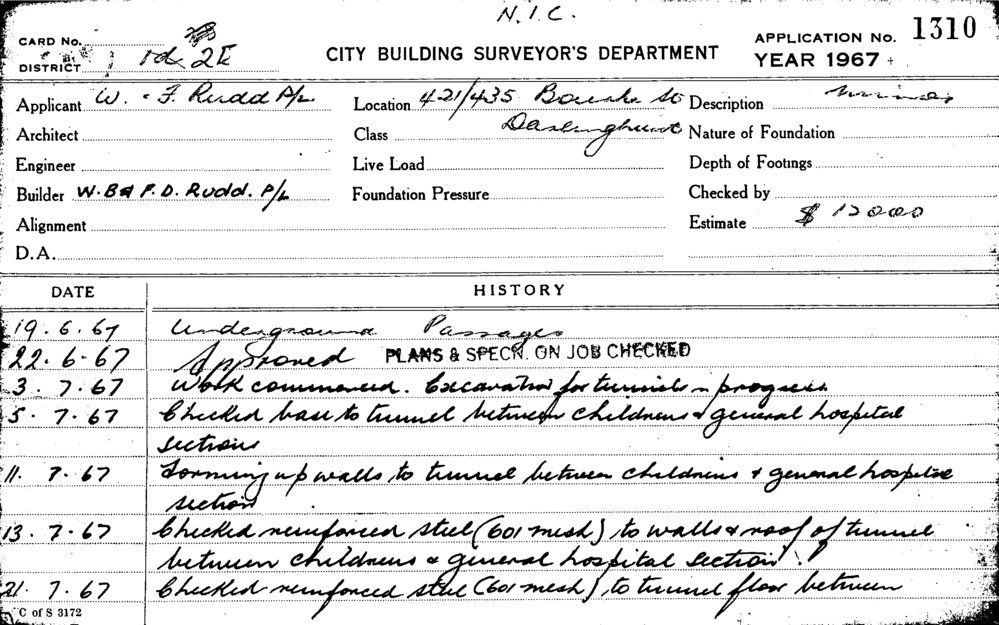 N.I.C.
CARD No.
DISTRICT 2E
CITY BUILDING SURVEYOR'S DEPARTMENT
APPLICATION No. 1310
YEAR 1967
Applicant W. F. Rudd P/L
Location 421/435 Bourke St
Description
Architect
Class Darlinghurst
Nature of Foundation
Engineer
Live Load
Depth of Footings
Builder W.B & F.D. Rudd. P/L
Foundation Pressure
Checked by
Alignment
Estimate $ 12000
D.A.
DATE HISTORY
19.6.67 Underground Passages
22.6.67 Approved PLANS & SPECN. ON JOB CHECKED
3.7.67 Work commenced. Excavation for tunnels in progress
5.7.67 Checked base to tunnel between childrens & general hospital
sections
11.7.67 Forming up walls to tunnel between childrens & general hospital
section
13.7.67 Checked reinforced steel (601 mesh) to walls & roof of tunnel
between childrens & general hospital section.
21.7.67 Checked reinforced steel (601 mesh) to tunnel floor between
C of S 3172